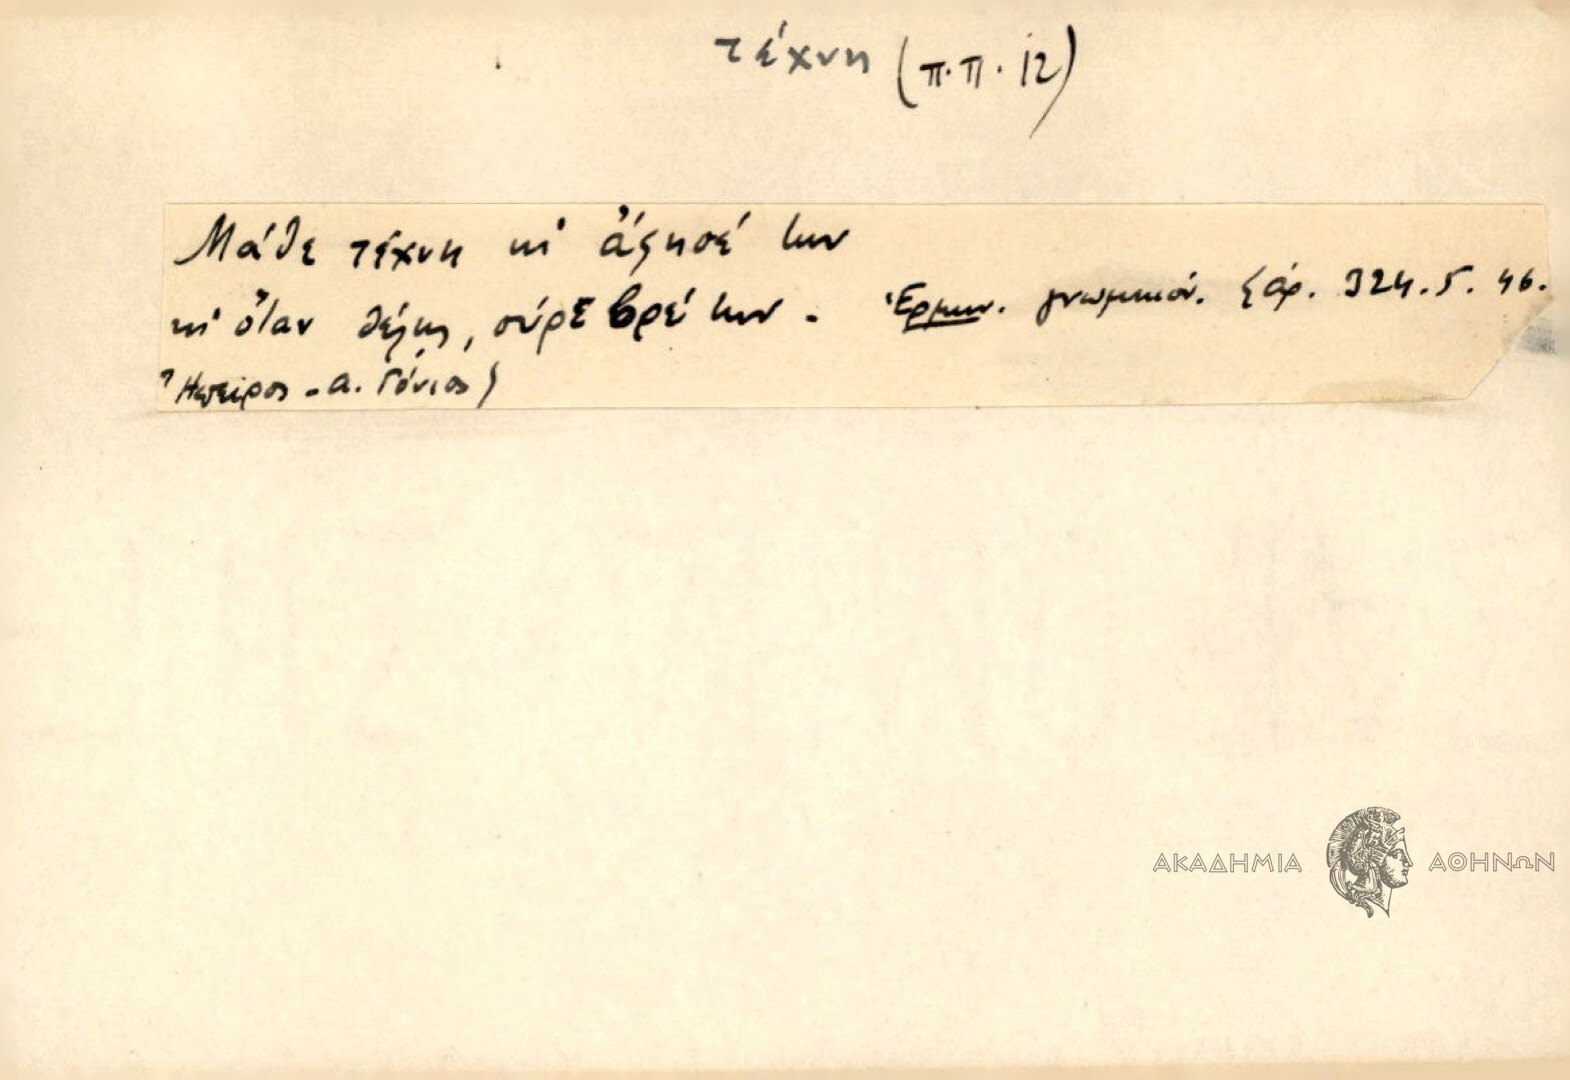 τέχνη (π.π. 12)
Μάθε τέχνη κι' ἄφησέ την
κι' ὅταν θέλῃς, σύρε βρέ την. Ἑρμην. γνωμικόν. 324.5.46.
Ἤπειρος - Α. Γόνιος)
ΑΚΑΔΗΜΙΑ ΑΘΗΝΩΝ